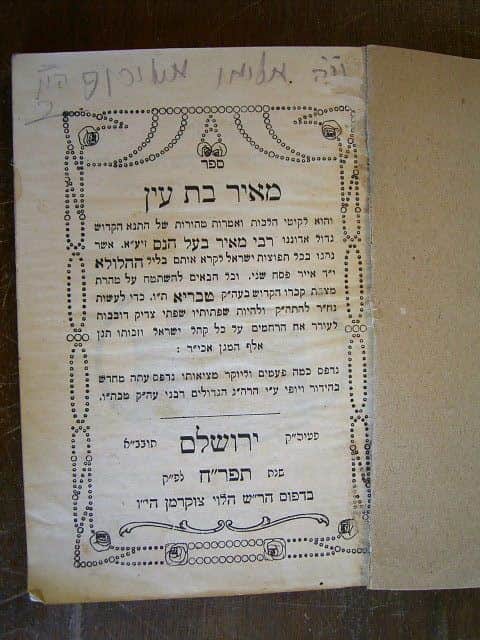 ספר
מאיר בת עין
והוא לקוטי הלכות ואמרות טהורות של התנא הקדוש
גדול אדוננו רבי מאיר בעל הנס זיע״א. אשר
נהגו בכל תפוצות ישראל לקרא אותם בליל ההלולא
י״ד אייר פסח שני. וכל הבאים להשתטח על מהרת
מצבת קברו הקדוש בעה״ק טבריא ת״ו. כדי לעשות
נח״ר להתה״ק ולהיות שפתותיו שפתי צדיק דובבות
לעורר את הרחמים על כל קהל ישראל וזכותו תגן
אלף המגן אכי״ר :
נדפס כמה פעמים וליוקר מציאותו נדפס עתה מחדש
בהידור ויופי ע״י הרה״ג הגדולים רבני עה״ק טבת״ו.
פעיה״ק ירושלם תובב״א
שנת תפר״ח לפ״ק
בדפוס הר״ש הלוי צוקרמן הי״ו